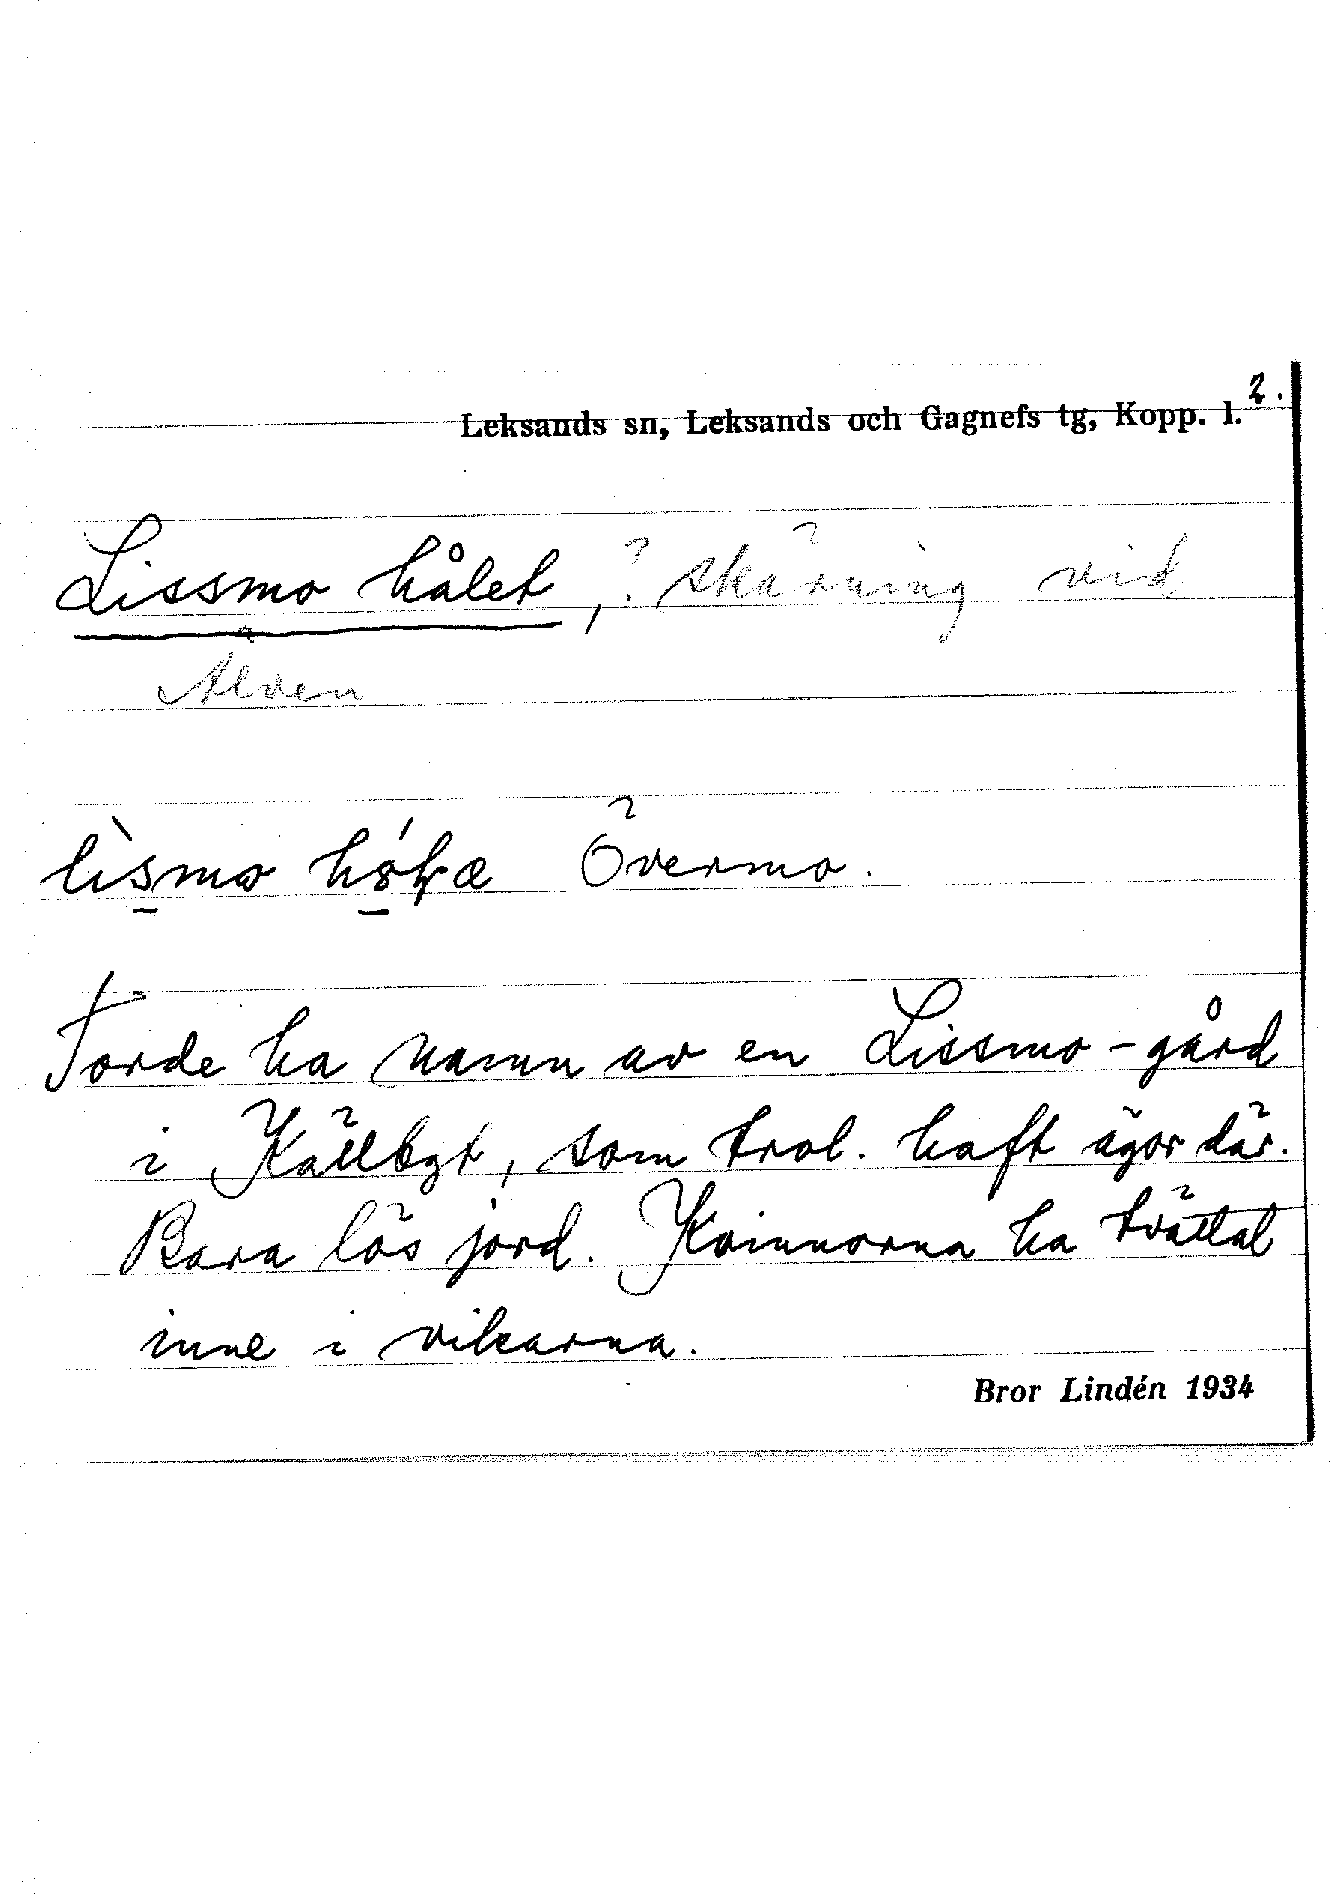 2.
Leksands sn, Leksands och Gagnefs tg, Kopp. l.
Lissmo hålet, ? skärning vid
Älven
Övermo.
Torde ha namn av en Lissmo-gård
i Källbyt, som trol. haft ägor där.
Bara lös jord. Kvinnorna ha tvättat
inne i vikarna.
Bror Lindén 1934